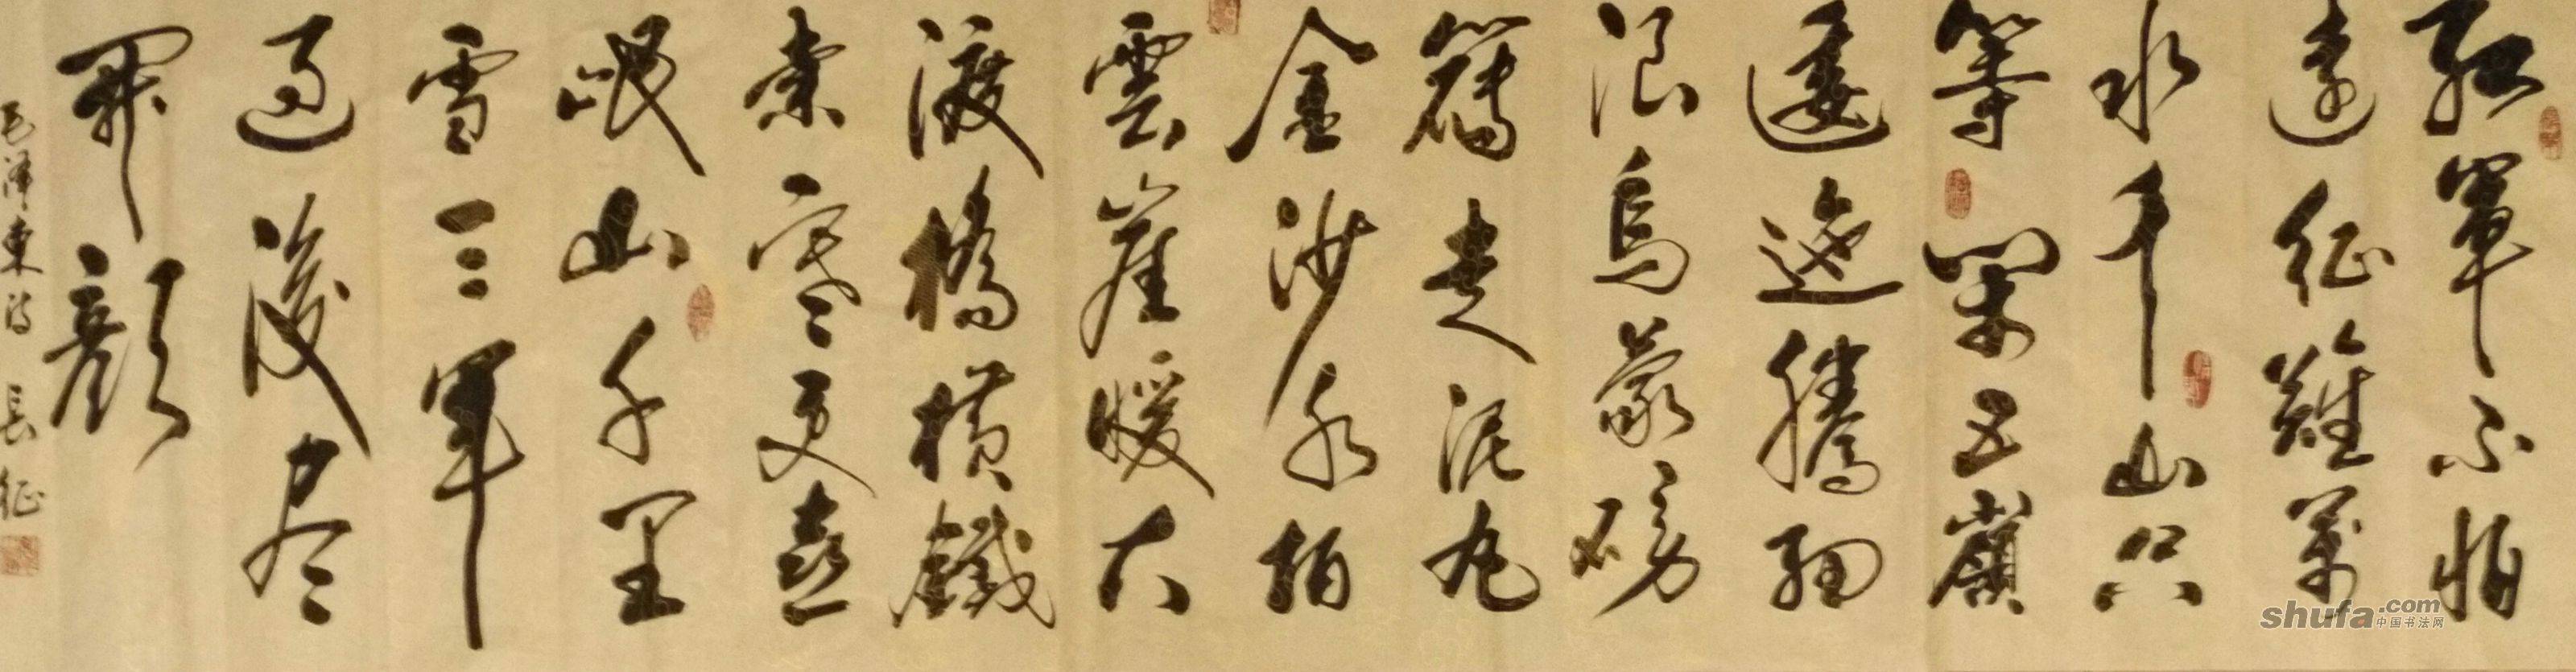 紅軍不怕
遠征難萬
水千山只
等閑五嶺
逶迤騰細
浪烏蒙磅
礴走泥丸
金沙水拍
雲崖暖大
渡橋橫鐵
索寒更喜
岷山千里
雪三軍
過後尽
開顏
毛澤東詩 長征
shufa.com
中国书法网